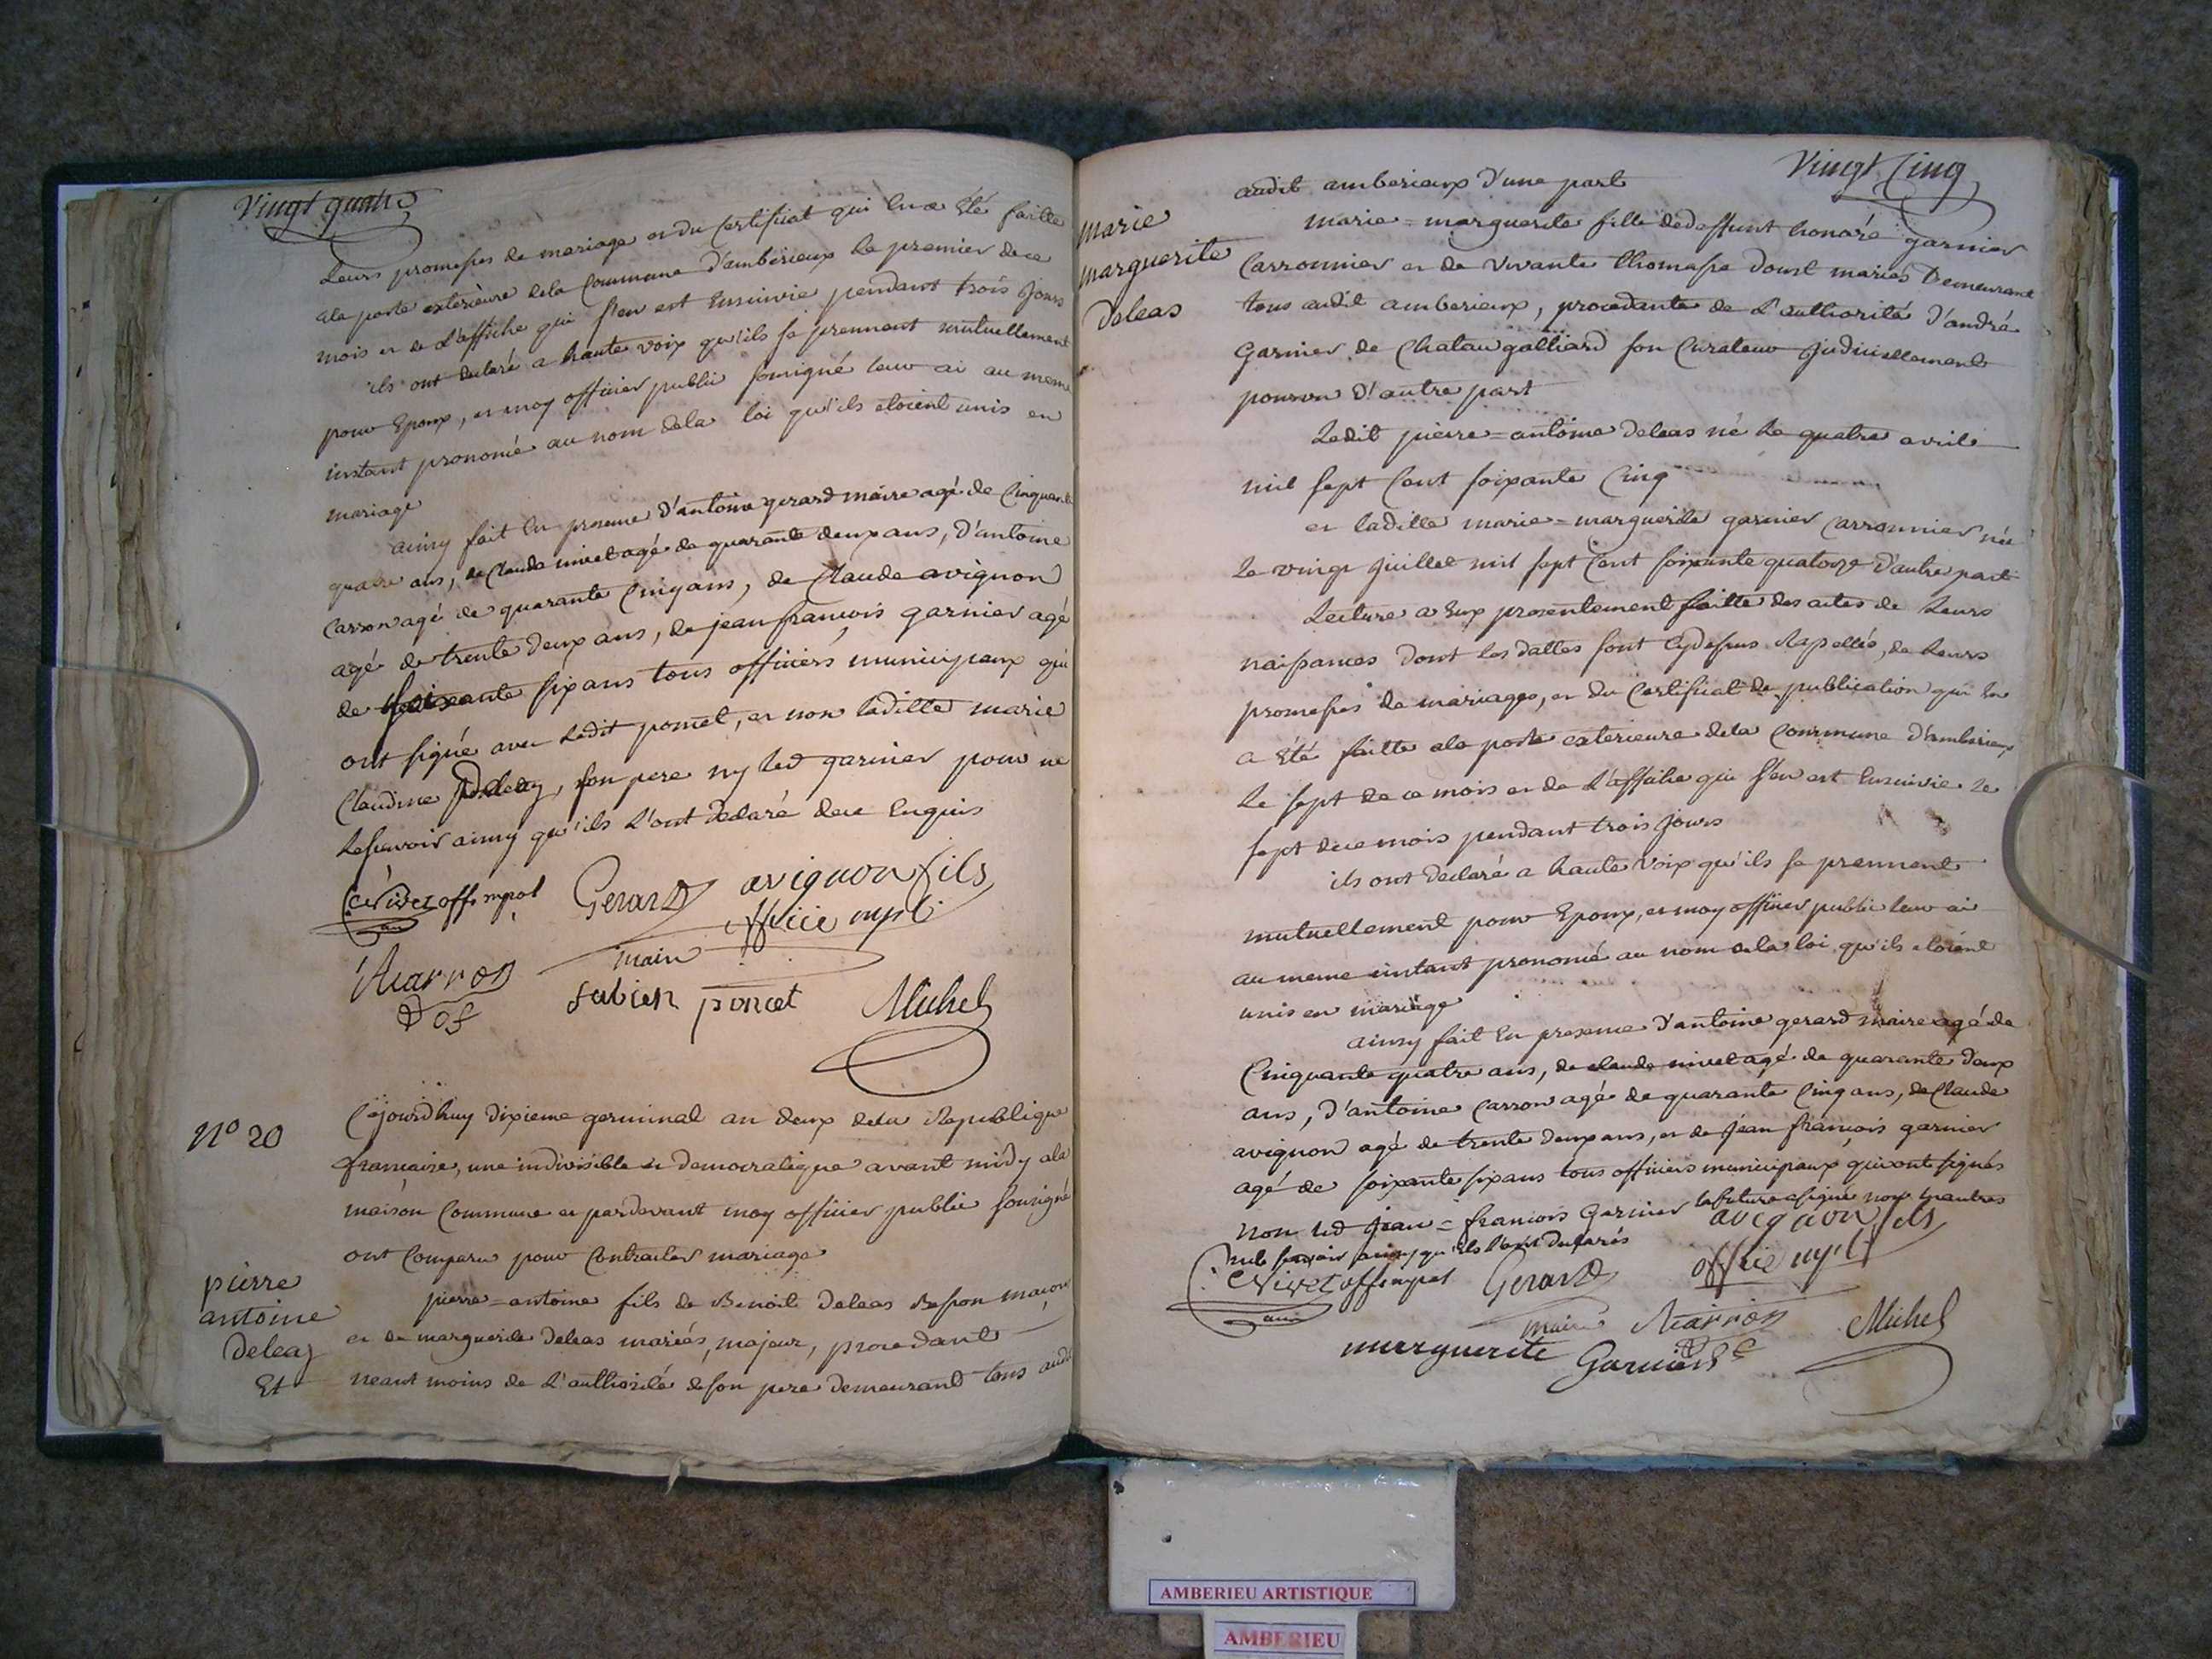 Vingt quatre
Leurs promesses de mariage et du Certificat qui en a été faitte
ala porte exterieure dela Commune d'amberieux Le premier de ce
mois et de L'affiche qui s'en est Ensuivie pendant trois Jours
ils ont declaré a haute voix qu'ils se prennent mutuellement
pour Epoux, et moy officier public soussigné leur ai au meme
instant prononcé au nom dela loi qu'ils etoient unis en
mariage
ainsy fait En presence d'antoine gerard maire agé de Cinquante
quatre ans, de Claude nivet agé de quarante deux ans, d'antoine
Carron agé de quarante Cinq ans, de Claude avignon
agé de trente deux ans, de jean françois garnier agé
de soixante six ans tous officiers municipaux qui
ont signé avec Ledit poncet, et non laditte marie
Claudine, son pere ny led garnier pour ne
Le sçavoir ainsy qu'ils L'ont declaré de ce Enquis
Nivet off. mpal
Gerard
avignon fils
maire
officie mpl
A carron
fabien poncet
Michel
N° 20
Cejourd'huy dixieme germinal an deux dela Republique
française, une indivisible et democratique avant midy ala
maison Commune et pardevant moy officier public soussigné
ont Comparu pour Contracter mariage
pierre
antoine
Deleaz
Et
pierre=antoine fils de Benoit Deleas Besson maçon
et de marguerite Deleas mariés, majeur, procedant
neant moins de L'authorité de son pere demeurant tous audit
Vingt Cinq
audit amberieux d'une part
marie
marguerite
Deleas
marie=marguerite fille de deffunt honoré garnier
Carronnier et de vivante thomasse Dourt mariés Demeurant
tous audit amberieux, procedante de L'authorité d'andré
Garnier de Chatau galliard son Curateur Judiciellement
pourvu d'autre part
Ledit pierre=antoine deleas né Le quatre avril
mil sept Cent soixante Cinq
et laditte marie=marguerite garnier Carronnier née
Le vingt Juillet mil sept Cent soixante quatorze d'autre part
Lecture a Eux presentement faitte des actes de Leurs
naissances dont les dattes sont Cydessus Rapellés, de Leurs
promesses de mariages, et du Certificat de publication qui En
a été faitte ala porte exterieure dela Commune d'amberieux
Le sept de ce mois et de L'affiche qui s'en est Ensuivie Le
sept de ce mois pendant trois Jours
ils ont declaré a haute voix qu'ils se prennent
mutuellement pour Epoux, et moy officier public leur ai
au meme instant prononcé au nom dela loi qu'ils etoient
unis en mariage
ainsy fait En presence d'antoine gerard maire agé de
Cinquante quatre ans, de claude nivet agé de quarante deux
ans, d'antoine Carron agé de quarante Cinq ans, de Claude
avignon agé de trente deux ans, et de Jean françois garnier
agé de soixante six ans tous officiers municipaux qui ont signés
non led jean=françois Garnier la future a signé non les autres
sçavoir ainsy qu'ils l'ont declarés
Nivet off. mpal
Gerard
avignon fils
officie mpl
maire
A carron
Michel
murguerite Garnier
AMBERIEU ARTISTIQUE
AMBERIEU